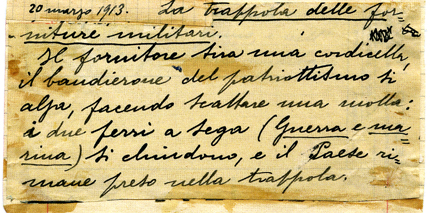 20 marzo 1913. La trappola delle for=
niture militari.
Il fornitore tira una cordicella,
il bandierone del patriottismo si
alza, facendo scattare una molla:
i due ferri a sega (Guerra e ma=
rina) si chiudono, e il Paese ri=
mane preso nella trappola.